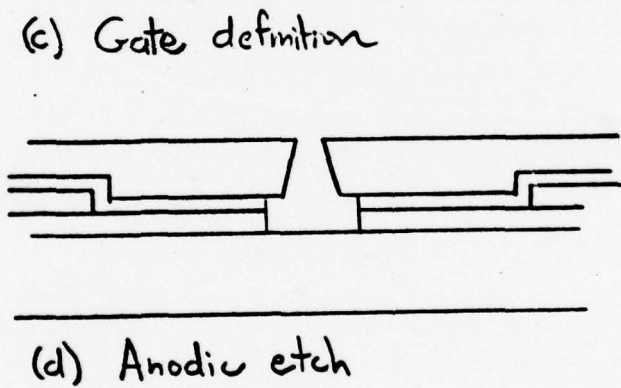 (c) Gate definition
(d) Anodic etch